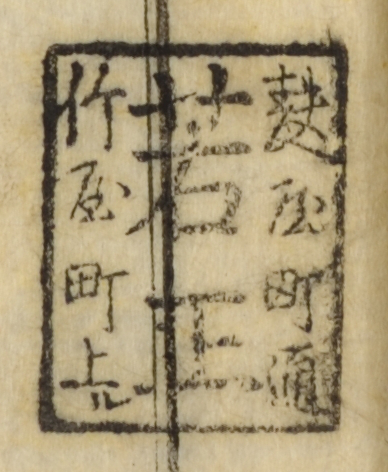 麸屋町通
若王
竹屋町上ル